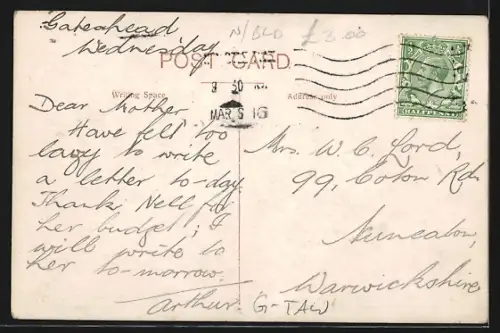 Gateshead
Wednesday
N/BLD
£3.00
POST CARD
Writing Space
Address only
9 30
MAR 5 16
HALFPENNY
Dear Mother
Have felt too
lazy to write
a letter to-day.
Thank Nell for
her budget; I
will write to
her to-morrow.
Arthur.
Mrs. W. C. Ford,
99, Coton Rd.
Nuneaton,
Warwickshire
G-TAW